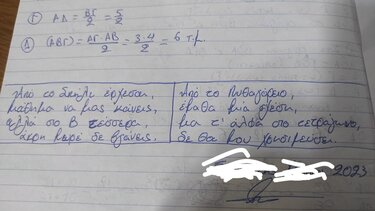 Γ) ΑΔ = ΒΓ/2 = 5/2
Δ) (ΑΒΓ) = ΑΓ·ΑΒ/2 = 3·4/2 = 6 τ.μ.
Από το έρχεσαι,
μάθημα να μας κάνεις,
αλλά στο Β τέσσερα
άκρη δε βγάνεις.
Από το Πυθαγόρειο,
έμαθα μία σχέση,
μα τ' άλφα στο τετράγωνο,
δε θα μου χρησιμεύσει.
2023